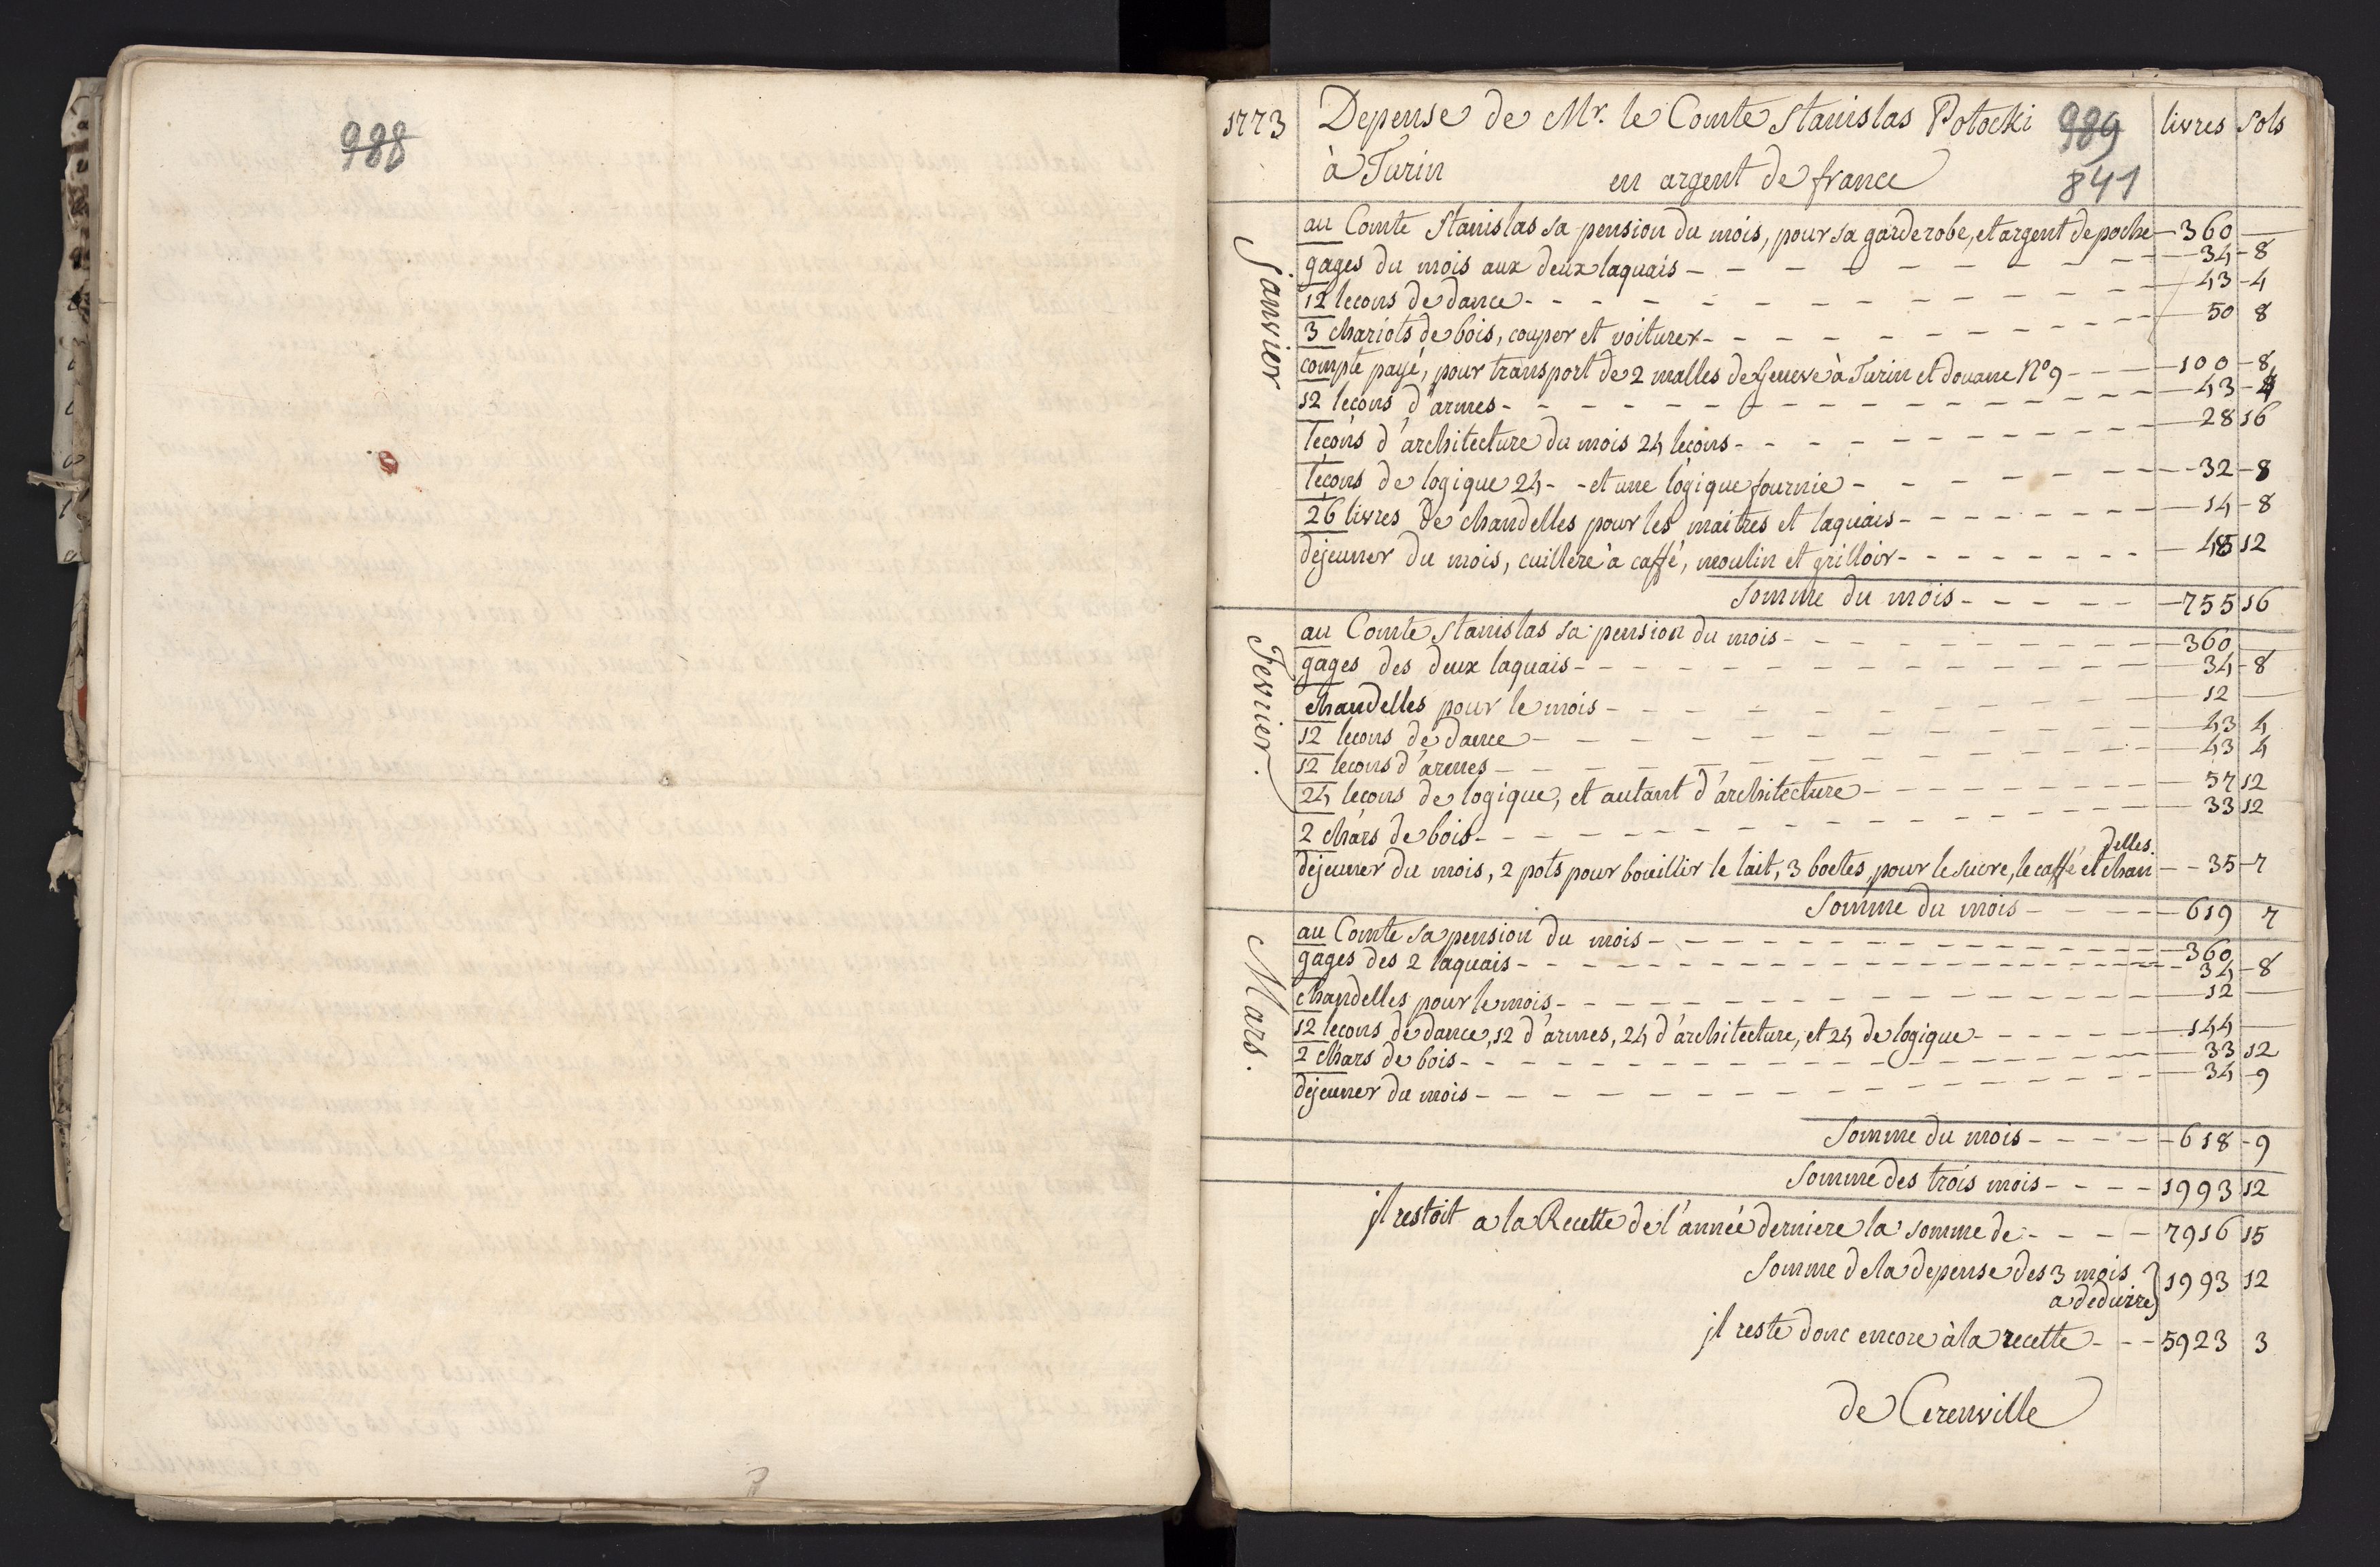 988
1773 Depense de Mr. le Comte Stanislas Potocki 989 livres sols
à Turin en argent de france 841
Janvier
au Comte Stanislas sa pension du mois, pour sa garderobe, et argent de poche - 360
gages du mois aux deux laquais - 34 - 8
12 lecons de dance - 43 - 4
3 chariots de bois, couper et voiturer - 50 8
compte payé, pour transport de 2 malles de Geneve à Turin et douane No 9 - 100 - 8
12 leçons d'armes - 43 - 4
leçons d'architecture du mois 24 leçons - 28 16
leçons de logique 24 - - et une logique fournie - 32 - 8
26 livres de chandelles pour les maitres et laquais - 14 - 8
dejeuner du mois, cuillere à caffé, moulin et grilloir - 48 12
Somme du mois - 755 16
Fevrier.
au Comte Stanislas sa pension du mois - 360
gages des deux laquais - 34 - 8
chandelles pour le mois - 12
12 lecons de dance - 43 4
12 lecons d'armes - 43 4
24 leçons de logique, et autant d'architecture - 57 12
2 chars de bois - 33 12
delles.
dejeuner du mois, 2 pots pour bouillir le lait, 3 boetes, pour le sucre, le caffé et chan - 35 - 7
Somme du mois - 619 7
Mars.
au Comte sa pension du mois - 360
gages des 2 laquais - 34 - 8
chandelles pour le mois - 12
12 lecons de dance, 12 d'armes, 24 d'architecture, et 24 de logique - 144
2 chars de bois - 33 12
dejeuner du mois - 34 - 9
Somme du mois - 618 - 9
Somme des trois mois - 1993 12
jl restoit a la Recette de l'année derniere la somme de - 7916 15
Somme de la depense des 3 mois } 1993 12
a deduire
jl reste donc encore à la recette - 5923 3
de Cerenville